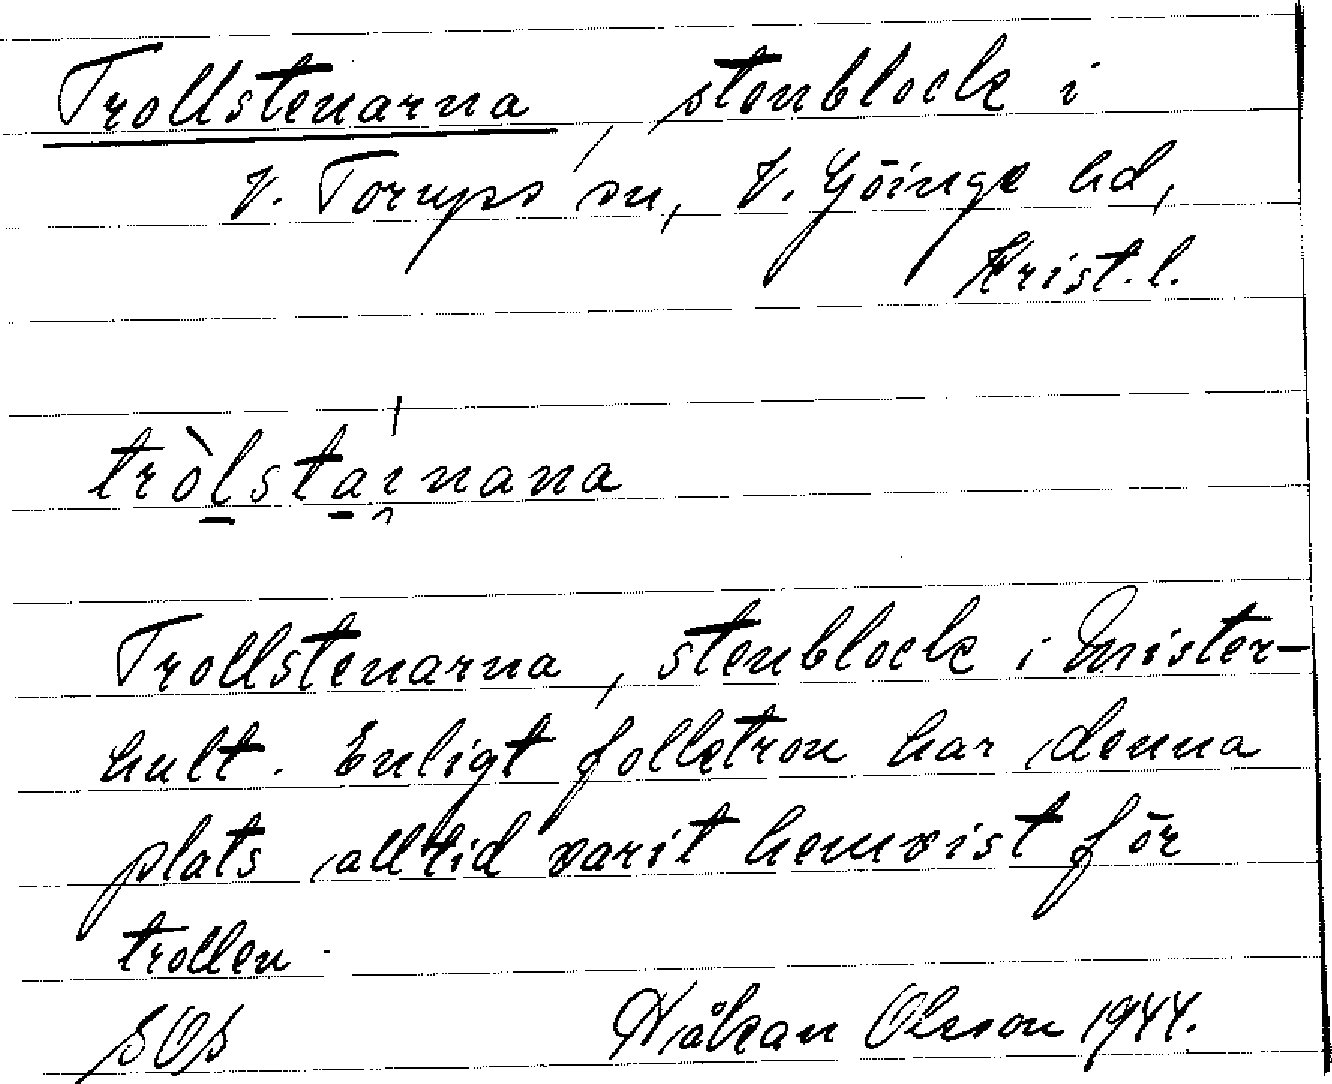 Trollstenarna, stenblock i
V. Torups sn, V. Göinge hd,
Krist. l.
tròlstai̯nana
Trollstenarna, stenblock i Mister-
hult. Enligt folktron har denna
plats alltid varit hemvist för
trollen.
SOS Håkan Olsson 1944.